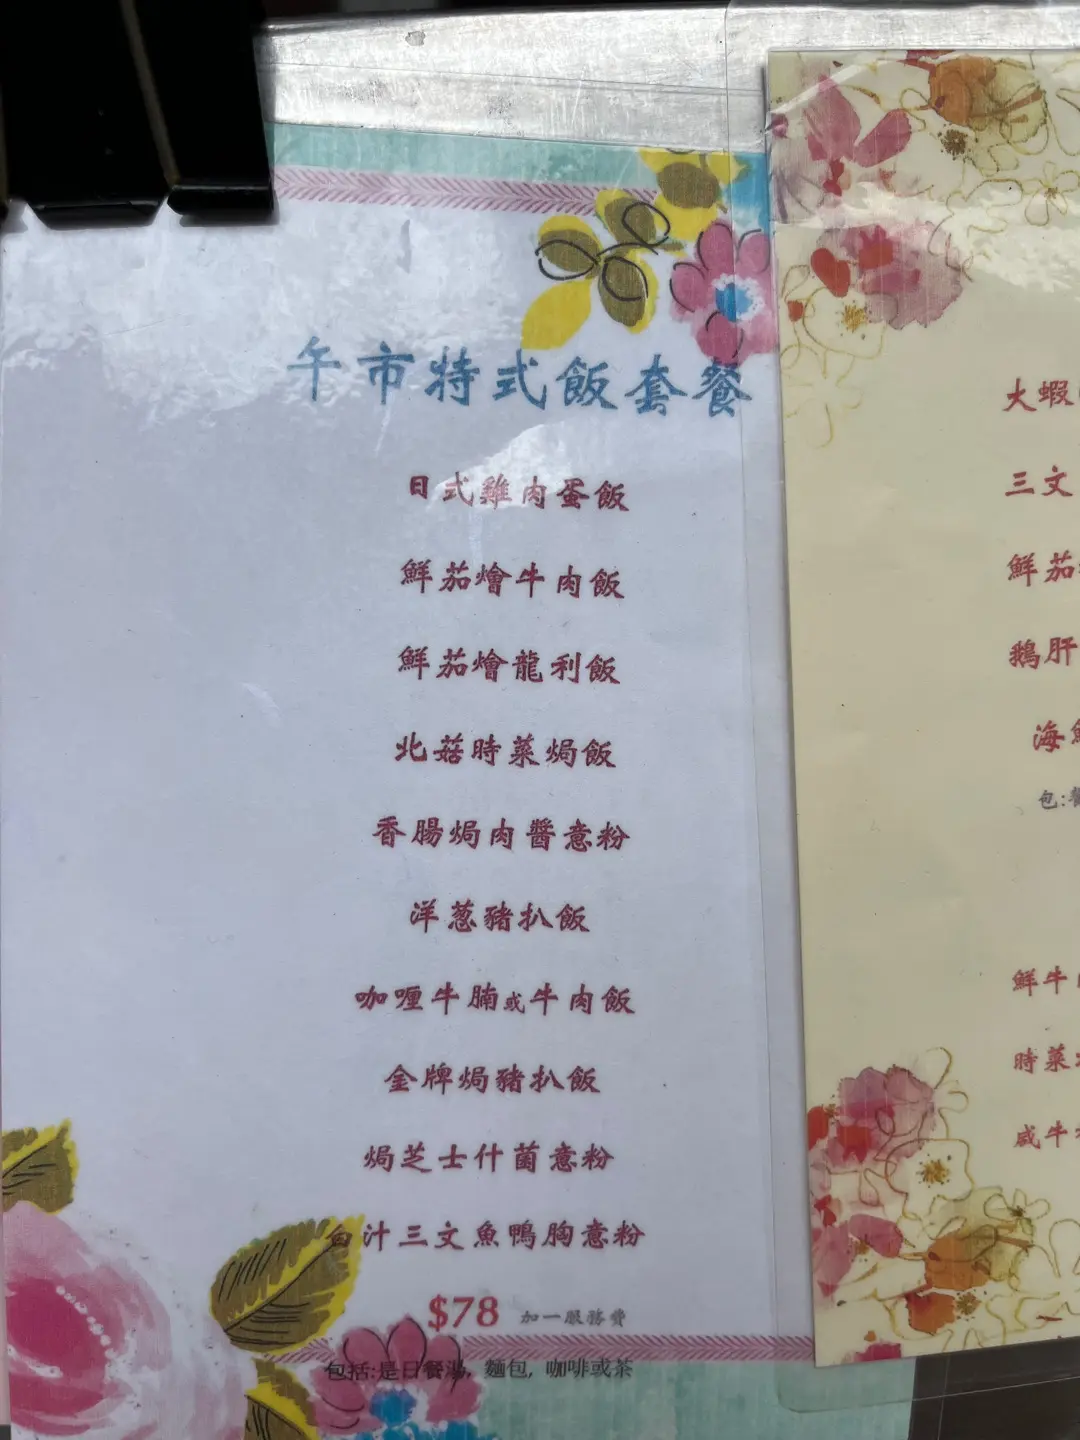 午市特式飯套餐
日式雞肉蛋飯
鮮茄燴牛肉飯
鮮茄燴龍利飯
北菇時菜焗飯
香腸焗肉醬意粉
洋葱豬扒飯
咖喱牛腩或牛肉飯
金牌焗豬扒飯
焗芝士什菌意粉
白汁三文魚鴨胸意粉
$78 加一服務費
包括:是日餐湯, 麵包, 咖啡或茶
大蝦
三文
鮮茄
鵝肝
海鮮
包:餐
鮮牛
時菜
咸牛